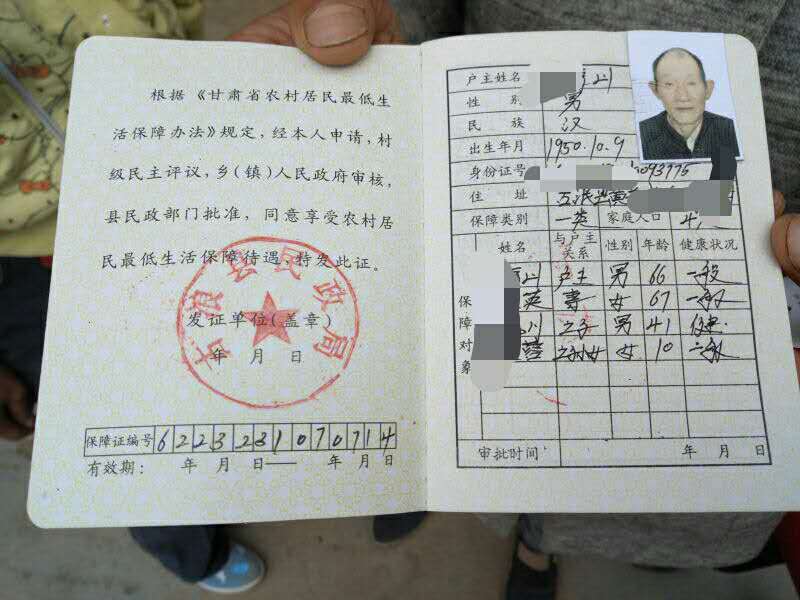 根据《甘肃省农村居民最低生
活保障办法》规定，经本人申请，村
级民主评议，乡（镇）人民政府审核，
县民政部门批准，同意享受农村居
民最低生活保障待遇，特发此证。
古浪县民政局
发证单位（盖章）
年 月 日
保障证编号 6223231070714
有效期： 年 月 日—— 年 月 日
户主姓名 山
性 别 男
民 族 汉
出生年月 1950.10.9
身份证号 093775
住 址
保障类别 一类 家庭人口 4人
保障对象
姓名 与户主关系 性别 年龄 健康状况
山 户主 男 66 一般
英 妻 女 67 一般
之子 男 41 健
之孙女 女 10 一般
审批时间 年 月 日